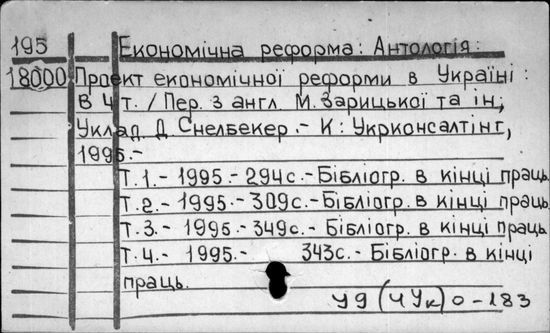 195 Економічна реформа: Антологія:
18000 Проект економічної реформи в Україні:
В 4 т. / Пер. з англ. М. Зарицької та ін;
Уклад. Д. Снелбекер. - К: Укрконсалтінг,
1995. -
Т. 1. - 1995. - 294с. - Бібліогр. в кінці праць.
Т. 2. - 1995. - 309с. - Бібліогр. в кінці праць.
Т. 3. - 1995. - 349с. - Бібліогр. в кінці праць.
Т. 4. - 1995. - 343с. - Бібліогр. в кінці
праць.
У9(4Ук)0-183